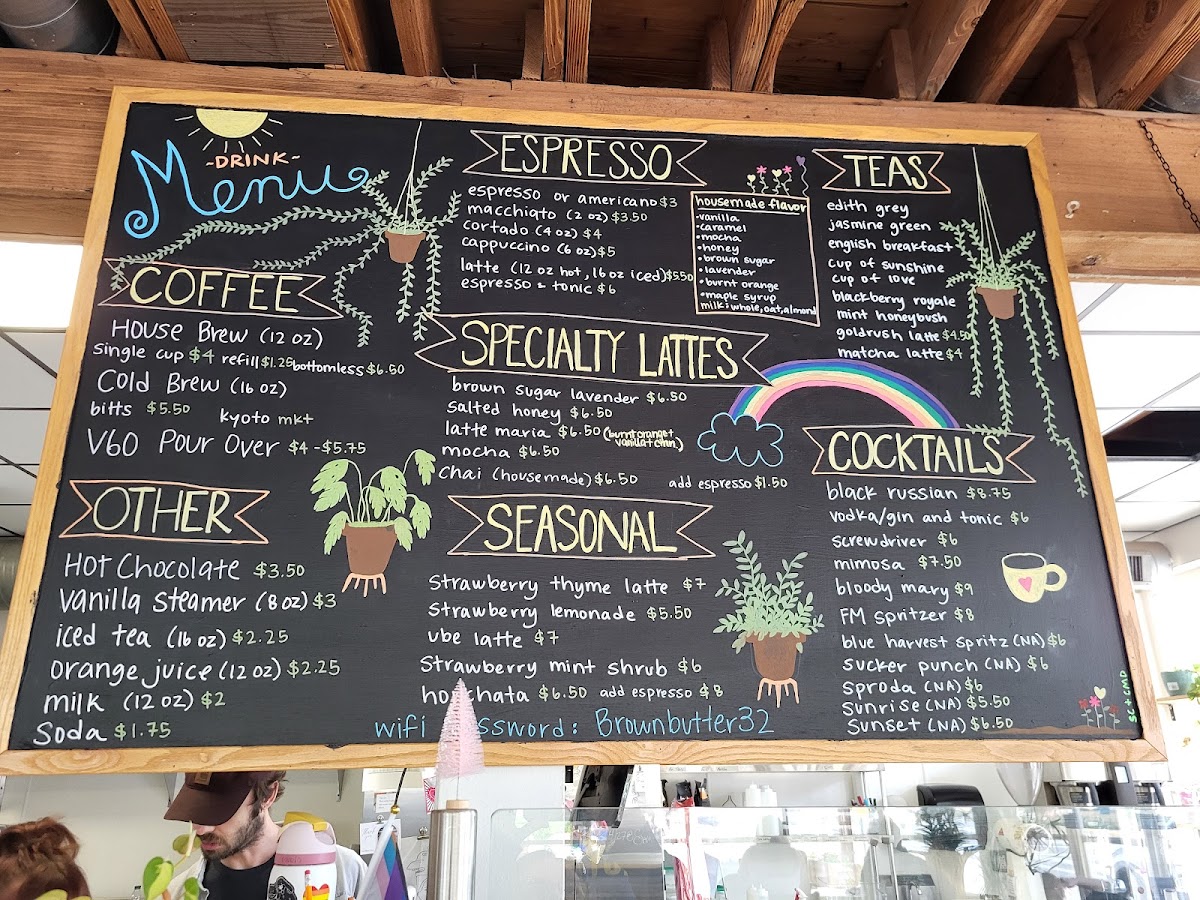 ~DRINK~
Menu
COFFEE
House Brew (12 oz)
single cup $4 refill $1.25 bottomless $6.50
Cold Brew (16 oz)
bitts $5.50 kyoto mkt
V60 Pour Over $4-$5.75
OTHER
Hot Chocolate $3.50
Vanilla steamer (8 oz) $3
iced tea (16 oz) $2.25
orange juice (12 oz) $2.25
milk (12 oz) $2
Soda $1.75
ESPRESSO
espresso or americano $3
macchiato (2 oz) $3.50
cortado (4 oz) $4
cappuccino (6 oz) $5
latte (12 oz hot, 16 oz iced) $5.50
espresso & tonic $6
housemade flavor
•vanilla
•caramel
•mocha
•honey
•brown sugar
•lavender
•burnt orange
•maple syrup
milk: whole, oat, almond
SPECIALTY LATTES
brown sugar lavender $6.50
salted honey $6.50
latte maria $6.50 (burnt orange +
vanilla + cinn.)
mocha $6.50
Chai (housemade) $6.50 add espresso $1.50
SEASONAL
Strawberry thyme latte $7
strawberry lemonade $5.50
ube latte $7
Strawberry mint shrub $6
$6.50 add espresso $8
wifi Brownbutter32
TEAS
edith grey
jasmine green
english breakfast
cup of sunshine
cup of love
blackberry royale
mint honeybush
goldrush latte $4.50
matcha latte $4
COCKTAILS
black russian $8.75
vodka/gin and tonic $6
screwdriver $6
mimosa $7.50
bloody mary $9
FM spritzer $8
blue harvest spritz (NA) $6
sucker punch (NA) $6
Sproda (NA) $6
Sunrise (NA) $5.50
Sunset (NA) $6.50
SC+CMD